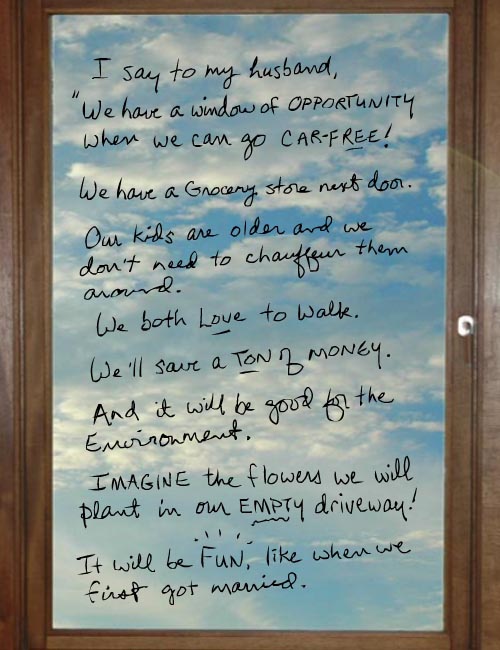 I say to my husband,
"We have a window of OPPORTUNITY
when we can go CAR-FREE!
We have a Grocery store next door.
Our kids are older and we
don't need to chauffeur them
around.
We both Love to walk.
We'll save a TON of MONEY.
And it will be good for the
Environment.
IMAGINE the flowers we will
plant in our EMPTY driveway!
It will be FUN, like when we
first got married.